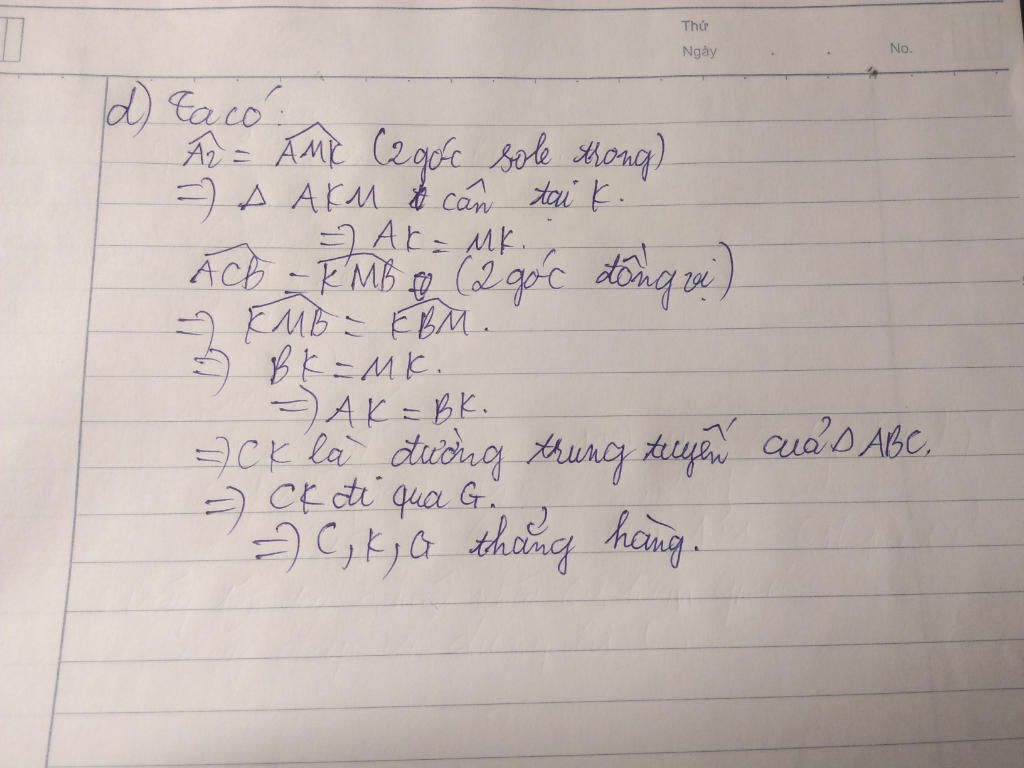 Thứ
Ngày . . No.
d) Ta có:
$\widehat{A_2}$ = $\widehat{AMK}$ (2 góc sole trong)
=> Δ AKM cân tại K.
=> AK = MK.
$\widehat{ACB}$ = $\widehat{KMB}$ (2 góc đồng vị)
=> $\widehat{KMB}$ = $\widehat{KBM}$.
=> BK = MK.
=> AK = BK.
=> CK là đường trung tuyến của Δ ABC.
=> CK đi qua G.
=> C, K, G thẳng hàng.